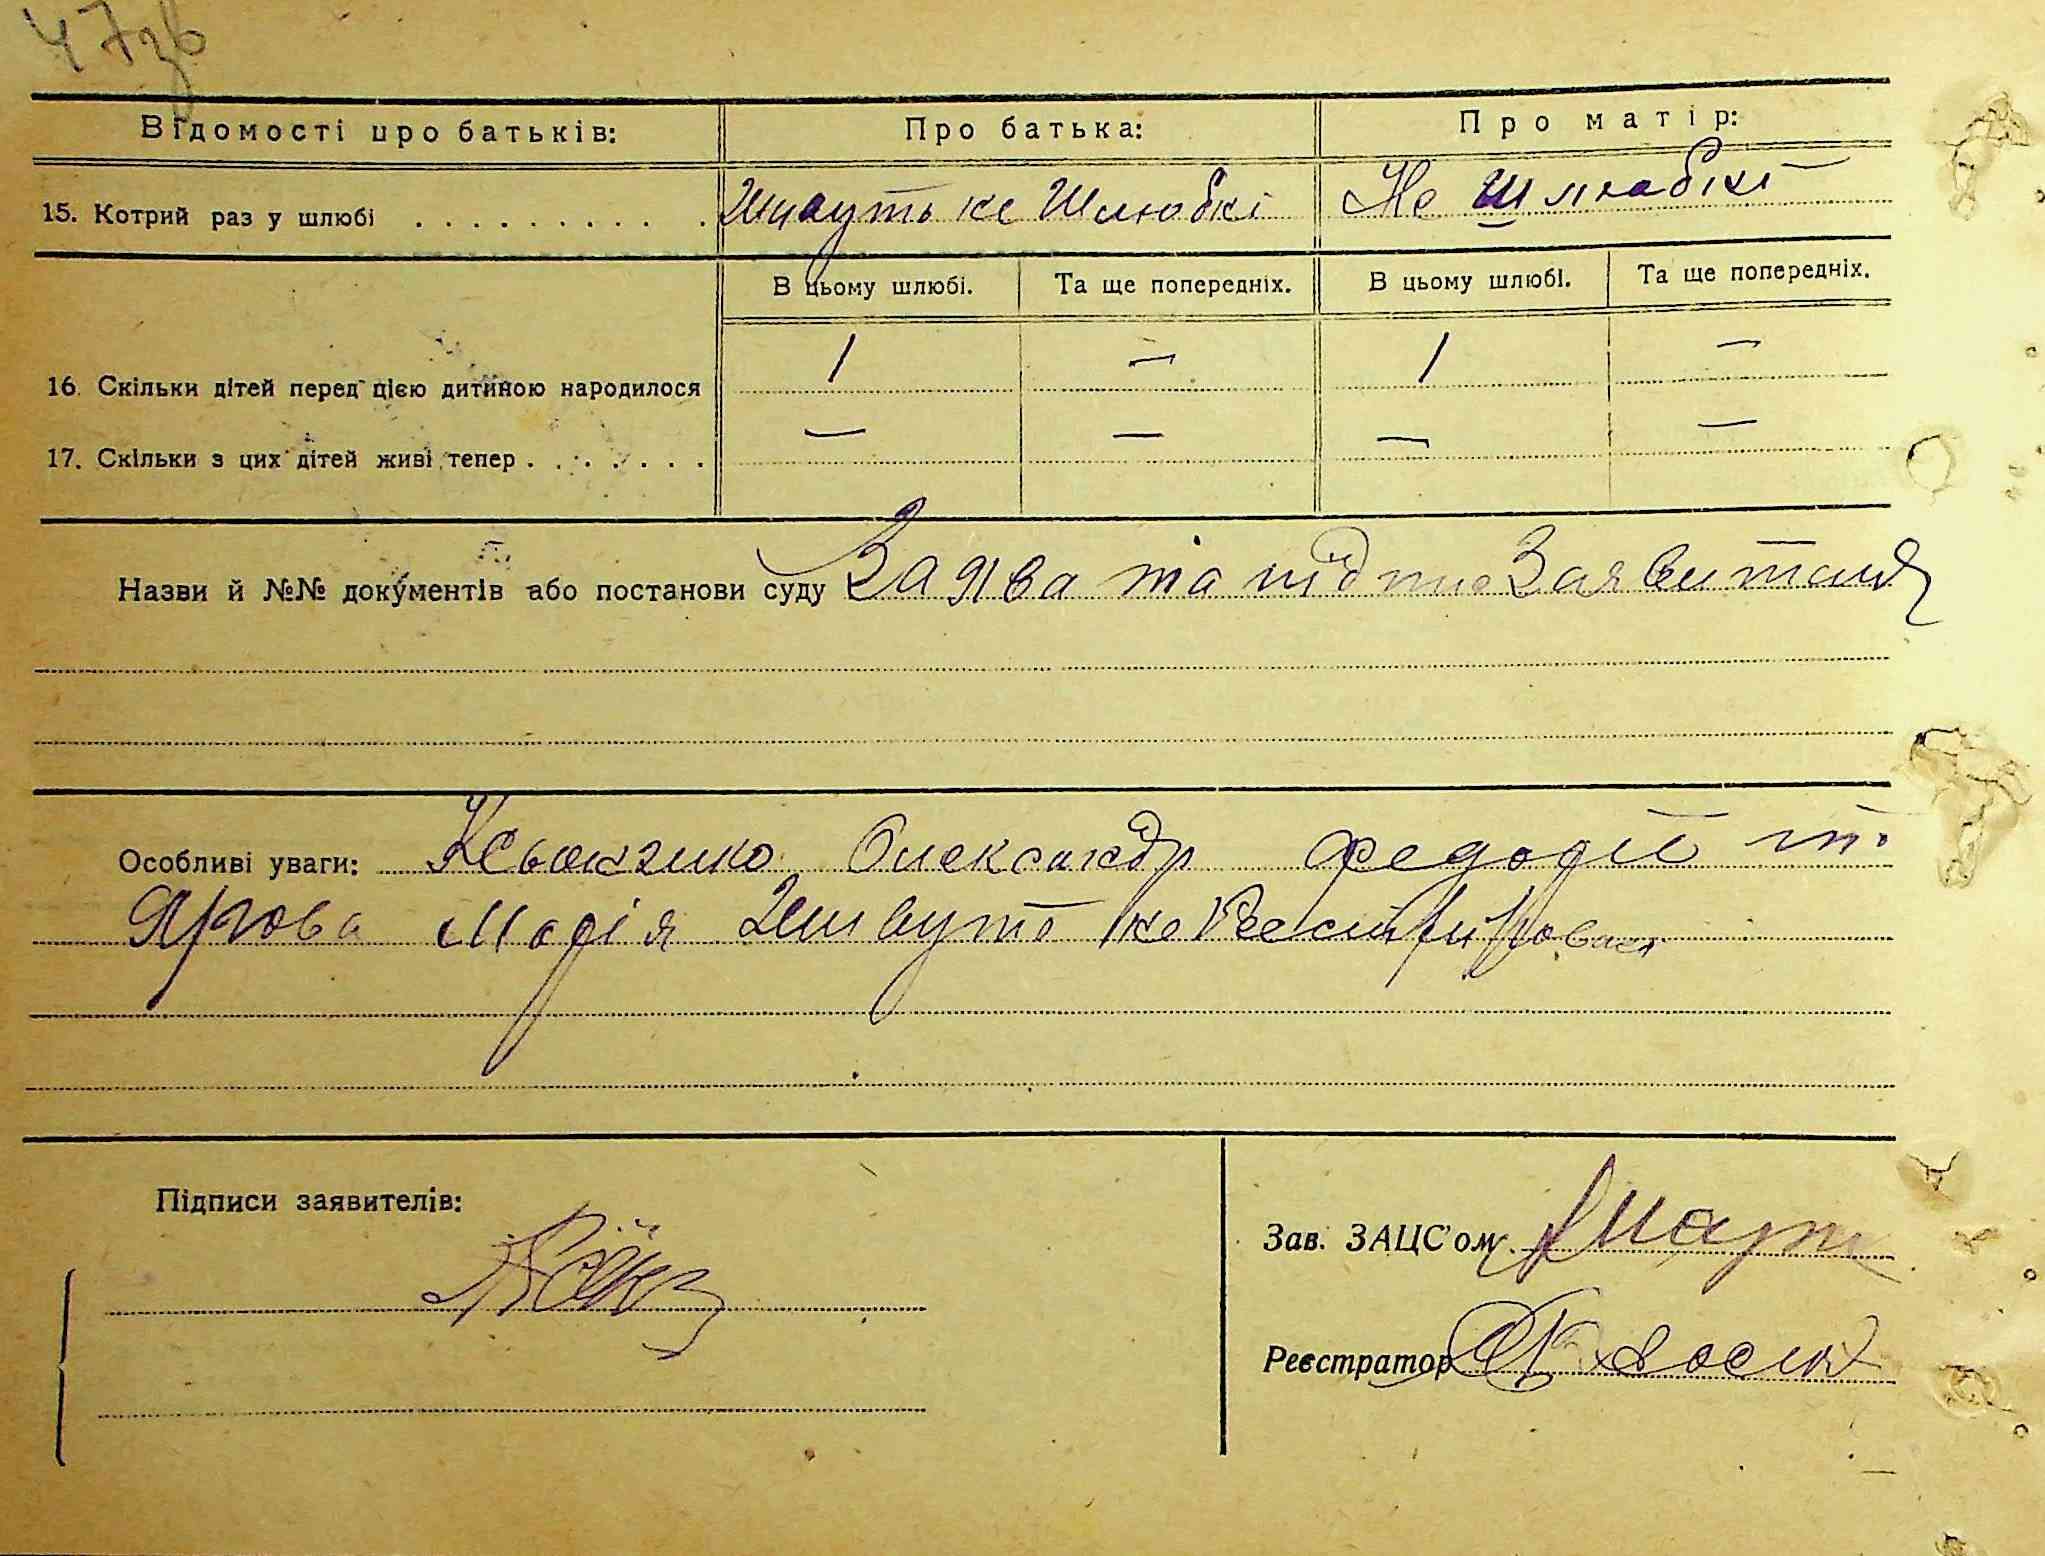 47зв
Відомості про батьків: Про батька: Про матір:
15. Котрий раз у шлюбі . . . . . . . . . . Живуть не Шлюбні Не шлюбні
В цьому шлюбі. Та ще попередніх. В цьому шлюбі. Та ще попередніх.
16. Скільки дітей перед цією дитиною народилося 1 — 1 —
17. Скільки з цих дітей живі тепер . . . . . . . — — — —
Назви й №№ документів або постанови суду Заява та підпис Заявителя
Особливі уваги: Олександр
Марія Живуть не
Підписи заявителів:
Зав. ЗАЦС'ом
Реєстратор